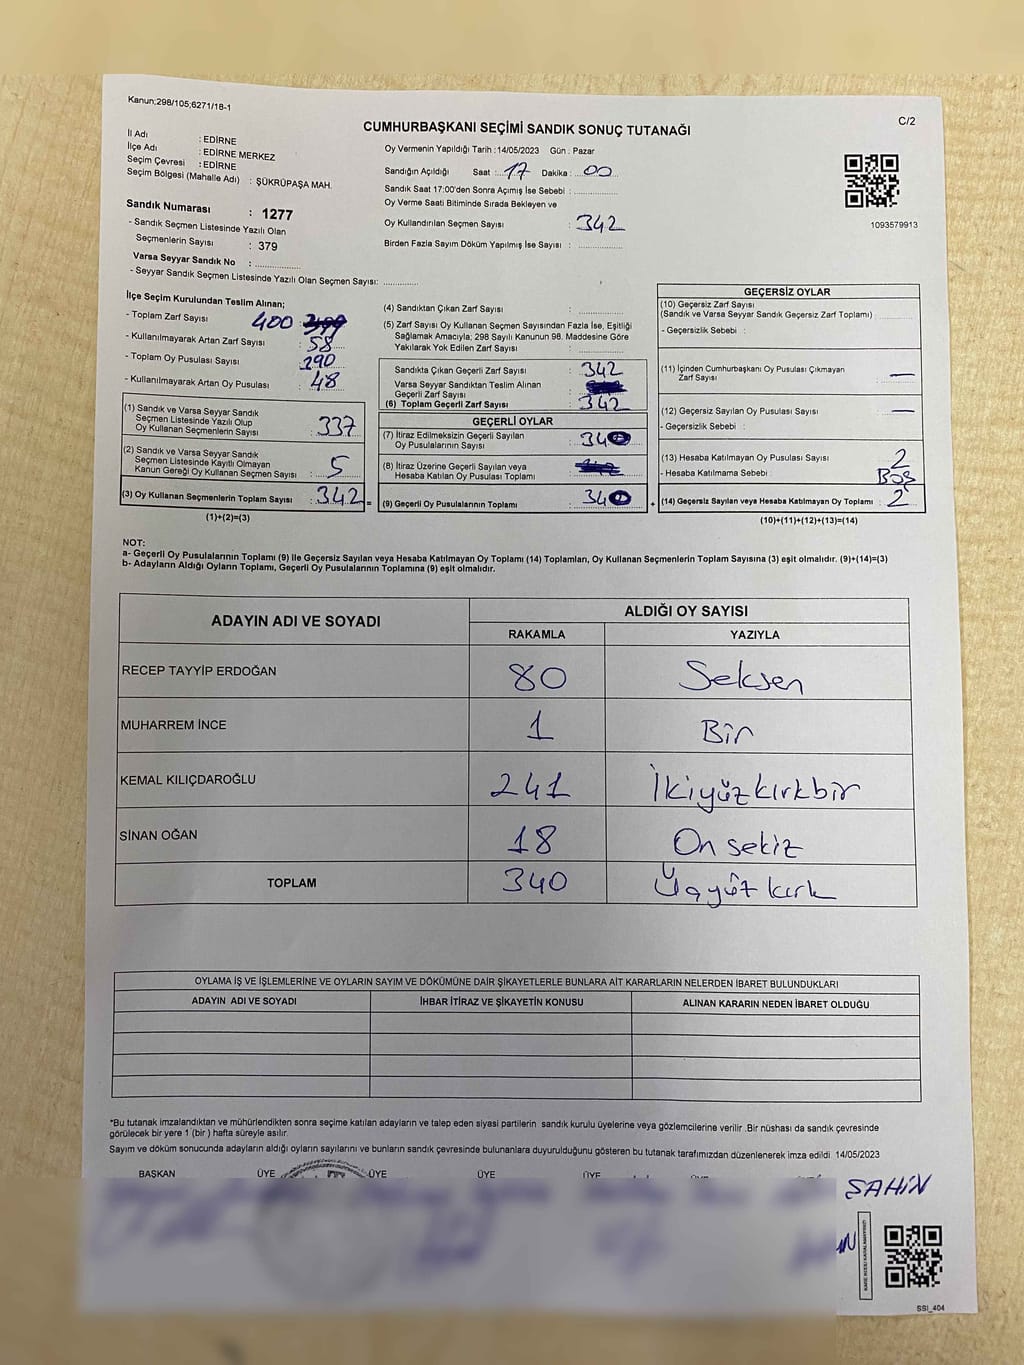 Kanun;298/105;6271/18-1
C/2
CUMHURBAŞKANI SEÇİMİ SANDIK SONUÇ TUTANAĞI
İl Adı : EDİRNE
İlçe Adı : EDİRNE MERKEZ
Seçim Çevresi : EDİRNE
Seçim Bölgesi (Mahalle Adı) : ŞÜKRÜPAŞA MAH.
Sandık Numarası : 1277
- Sandık Seçmen Listesinde Yazılı Olan
Seçmenlerin Sayısı : 379
Varsa Seyyar Sandık No :
- Seyyar Sandık Seçmen Listesinde Yazılı Olan Seçmen Sayısı:
Oy Vermenin Yapıldığı Tarih :14/05/2023 Gün : Pazar
Sandığın Açıldığı Saat : 17 Dakika : 00
Sandık Saat 17:00'den Sonra Açımış İse Sebebi :
Oy Verme Saati Bitiminde Sırada Bekleyen ve
Oy Kullandırılan Seçmen Sayısı : 342
Birden Fazla Sayım Döküm Yapılmış İse Sayısı :
1093579913
İlçe Seçim Kurulundan Teslim Alınan;
- Toplam Zarf Sayısı 400
- Kullanılmayarak Artan Zarf Sayısı 58
- Toplam Oy Pusulası Sayısı 390
- Kullanılmayarak Artan Oy Pusulası 48
(1) Sandık ve Varsa Seyyar Sandık
Seçmen Listesinde Yazılı Olup
Oy Kullanan Seçmenlerin Sayısı : 337
(2) Sandık ve Varsa Seyyar Sandık
Seçmen Listesinde Kayıtlı Olmayan
Kanun Gereği Oy Kullanan Seçmen Sayısı : 5
(3) Oy Kullanan Seçmenlerin Toplam Sayısı : 342 =
(1)+(2)=(3)
(4) Sandıktan Çıkan Zarf Sayısı :
(5) Zarf Sayısı Oy Kullanan Seçmen Sayısından Fazla İse, Eşitliği
Sağlamak Amacıyla; 298 Sayılı Kanunun 98. Maddesine Göre
Yakılarak Yok Edilen Zarf Sayısı :
Sandıkta Çıkan Geçerli Zarf Sayısı : 342
Varsa Seyyar Sandıktan Teslim Alınan
Geçerli Zarf Sayısı :
(6) Toplam Geçerli Zarf Sayısı : 342
GEÇERLİ OYLAR
(7) İtiraz Edilmeksizin Geçerli Sayılan
Oy Pusulalarının Sayısı : 340
(8) İtiraz Üzerine Geçerli Sayılan veya
Hesaba Katılan Oy Pusulası Toplamı :
(9) Geçerli Oy Pusulalarının Toplamı : 340 +
GEÇERSİZ OYLAR
(10) Geçersiz Zarf Sayısı
(Sandık ve Varsa Seyyar Sandık Geçersiz Zarf Toplamı)
- Geçersizlik Sebebi :
(11) İçinden Cumhurbaşkanı Oy Pusulası Çıkmayan
Zarf Sayısı : —
(12) Geçersiz Sayılan Oy Pusulası Sayısı : —
- Geçersizlik Sebebi :
(13) Hesaba Katılmayan Oy Pusulası Sayısı : 2
- Hesaba Katılmama Sebebi : Boş
(14) Geçersiz Sayılan veya Hesaba Katılmayan Oy Toplamı : 2
(10)+(11)+(12)+(13)=(14)
NOT:
a- Geçerli Oy Pusulalarının Toplamı (9) ile Geçersiz Sayılan veya Hesaba Katılmayan Oy Toplamı (14) Toplamları, Oy Kullanan Seçmenlerin Toplam Sayısına (3) eşit olmalıdır. (9)+(14)=(3)
b- Adayların Aldığı Oyların Toplamı, Geçerli Oy Pusulalarının Toplamına (9) eşit olmalıdır.
ADAYIN ADI VE SOYADI ALDIĞI OY SAYISI
RAKAMLA YAZIYLA
RECEP TAYYİP ERDOĞAN 80 Seksen
MUHARREM İNCE 1 Bir
KEMAL KILIÇDAROĞLU 241 İkiyüzkırkbir
SİNAN OĞAN 18 On sekiz
TOPLAM 340 Üçyüz kırk
OYLAMA İŞ VE İŞLEMLERİNE VE OYLARIN SAYIM VE DÖKÜMÜNE DAİR ŞİKAYETLERLE BUNLARA AİT KARARLARIN NELERDEN İBARET BULUNDUKLARI
ADAYIN ADI VE SOYADI İHBAR İTİRAZ VE ŞİKAYETİN KONUSU ALINAN KARARIN NEDEN İBARET OLDUĞU
*Bu tutanak imzalandıktan ve mühürlendikten sonra seçime katılan adayların ve talep eden siyasi partilerin sandık kurulu üyelerine veya gözlemcilerine verilir .Bir nüshası da sandık çevresinde
görülecek bir yere 1 (bir ) hafta süreyle asılır.
Sayım ve döküm sonucunda adayların aldığı oyların sayılarını ve bunların sandık çevresinde bulunanlara duyurulduğunu gösteren bu tutanak tarafımızdan düzenlenerek imza edildi. 14/05/2023
BAŞKAN ÜYE ÜYE ÜYE ÜYE ÜYE
ŞAHİN
SSI_404